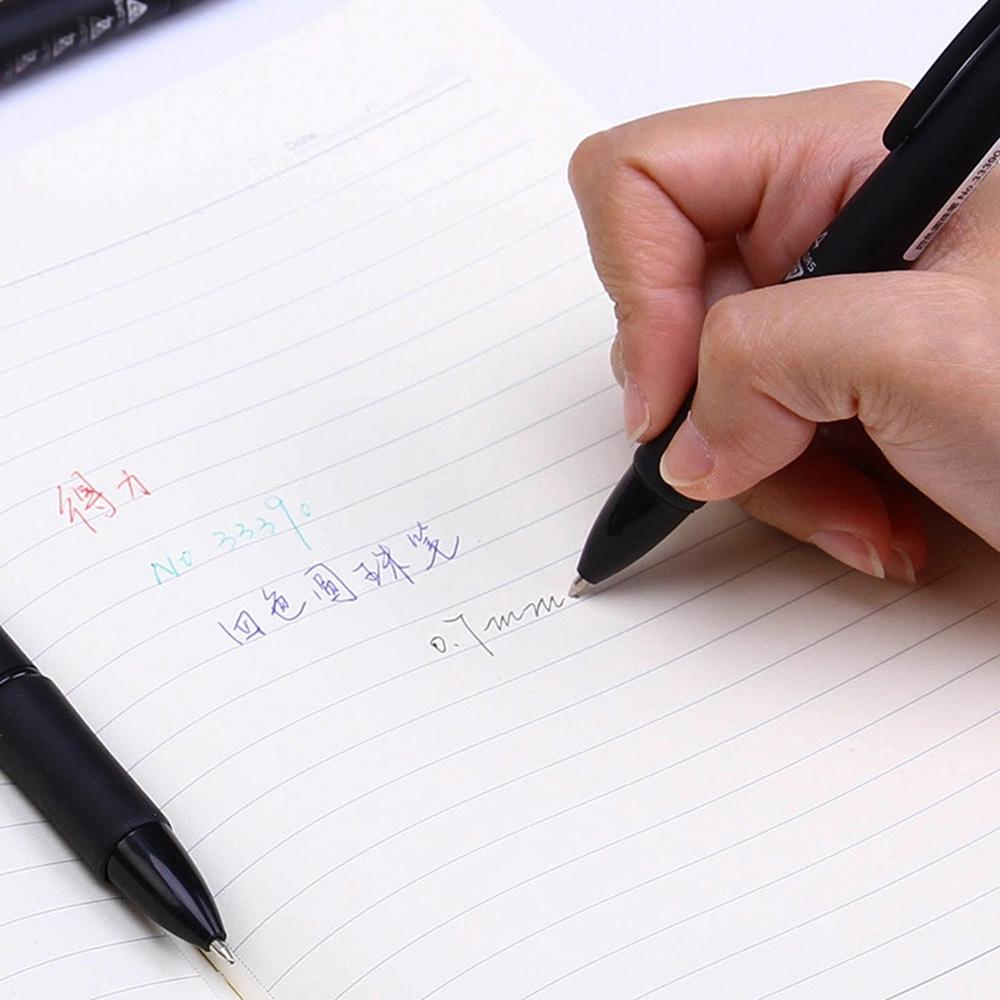 Date
得力
No 33390
四色圆珠笔
0.7mm